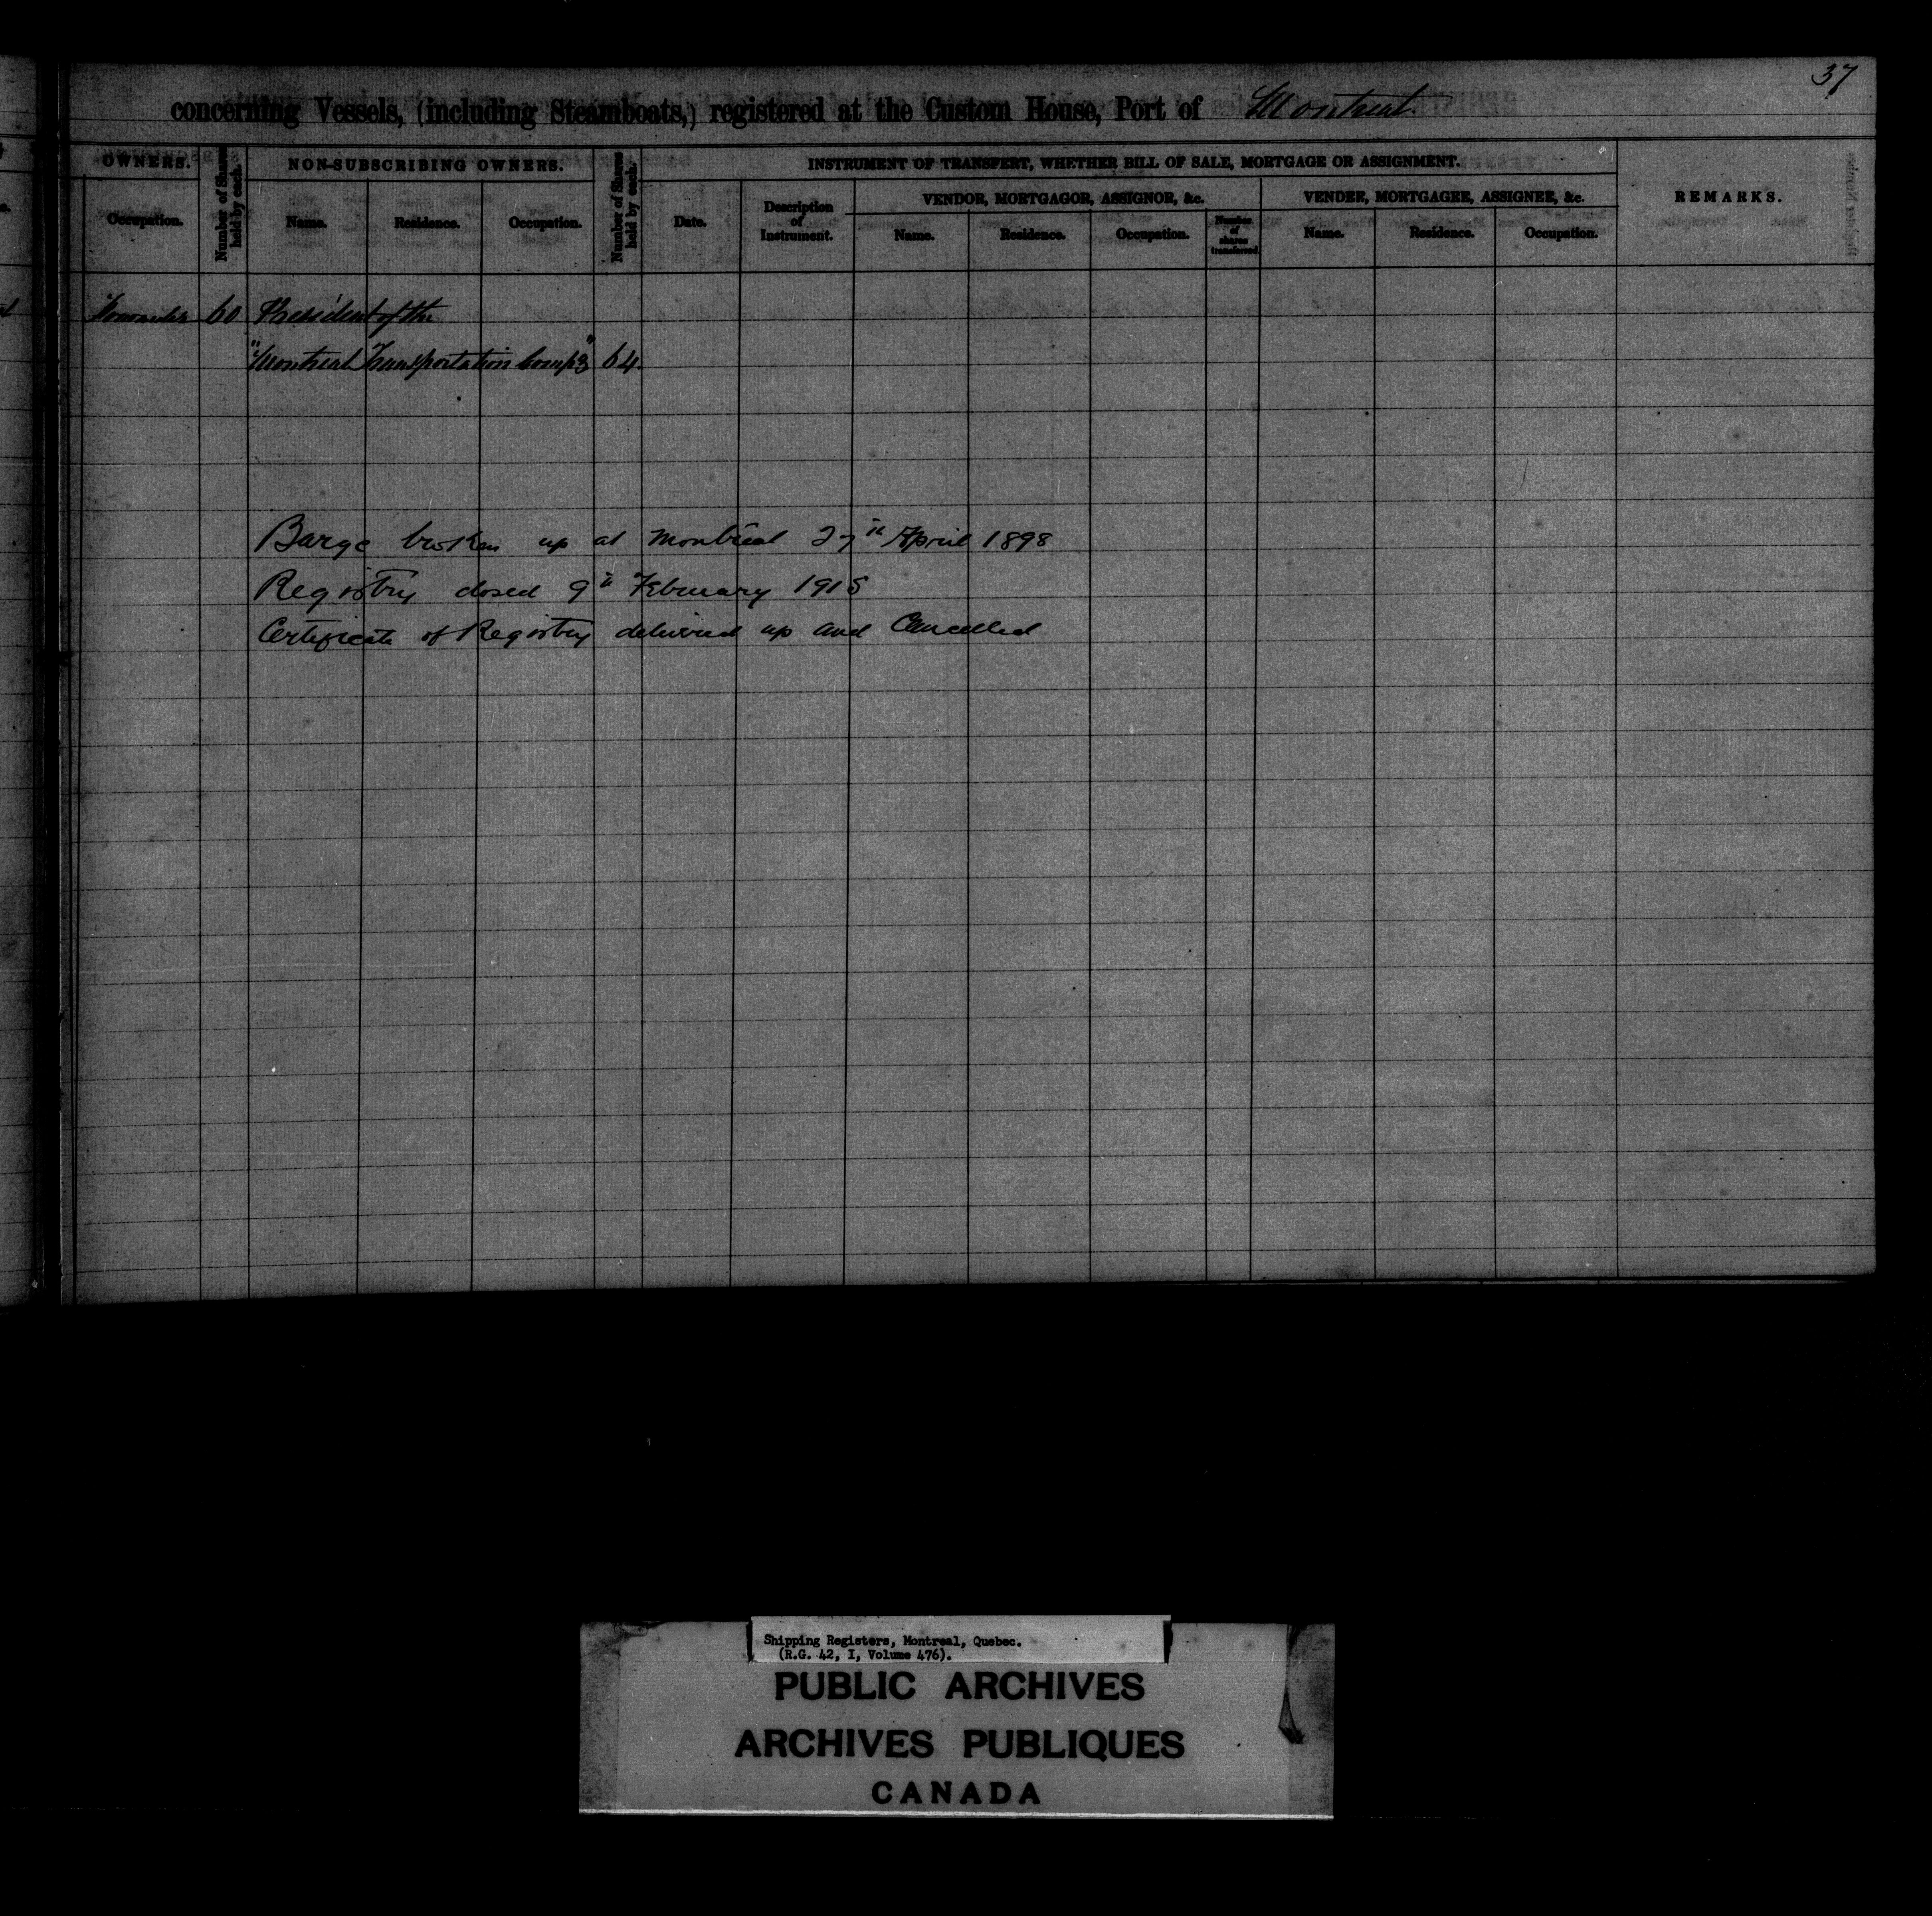 37
concerning Vessels, (including Steamboats,) registered at the Custom House, Port of Montreal
OWNERS. Number of Shares held by each. NON-SUBSCRIBING OWNERS. Number of Shares held by each. INSTRUMENT OF TRANSFERT, WHETHER BILL OF SALE, MORTGAGE OR ASSIGNMENT. REMARKS.
VENDOR, MORTGAGOR, ASSIGNOR, &c. VENDEE, MORTGAGEE, ASSIGNEE, &c.
Occupation. Name. Residence. Occupation. Date. Description of Instrument. Name. Residence. Occupation. Number of shares transferred Name. Residence. Occupation.
60 President of the
"Montreal Transportation Compy" 64
Barge broken up at Montreal 27th April 1898
Registry closed 9th February 1915
Certificate of Registry delivered up and Cancelled
Shipping Registers, Montreal, Quebec.
(R.G. 42, I, Volume 476).
PUBLIC ARCHIVES
ARCHIVES PUBLIQUES
CANADA